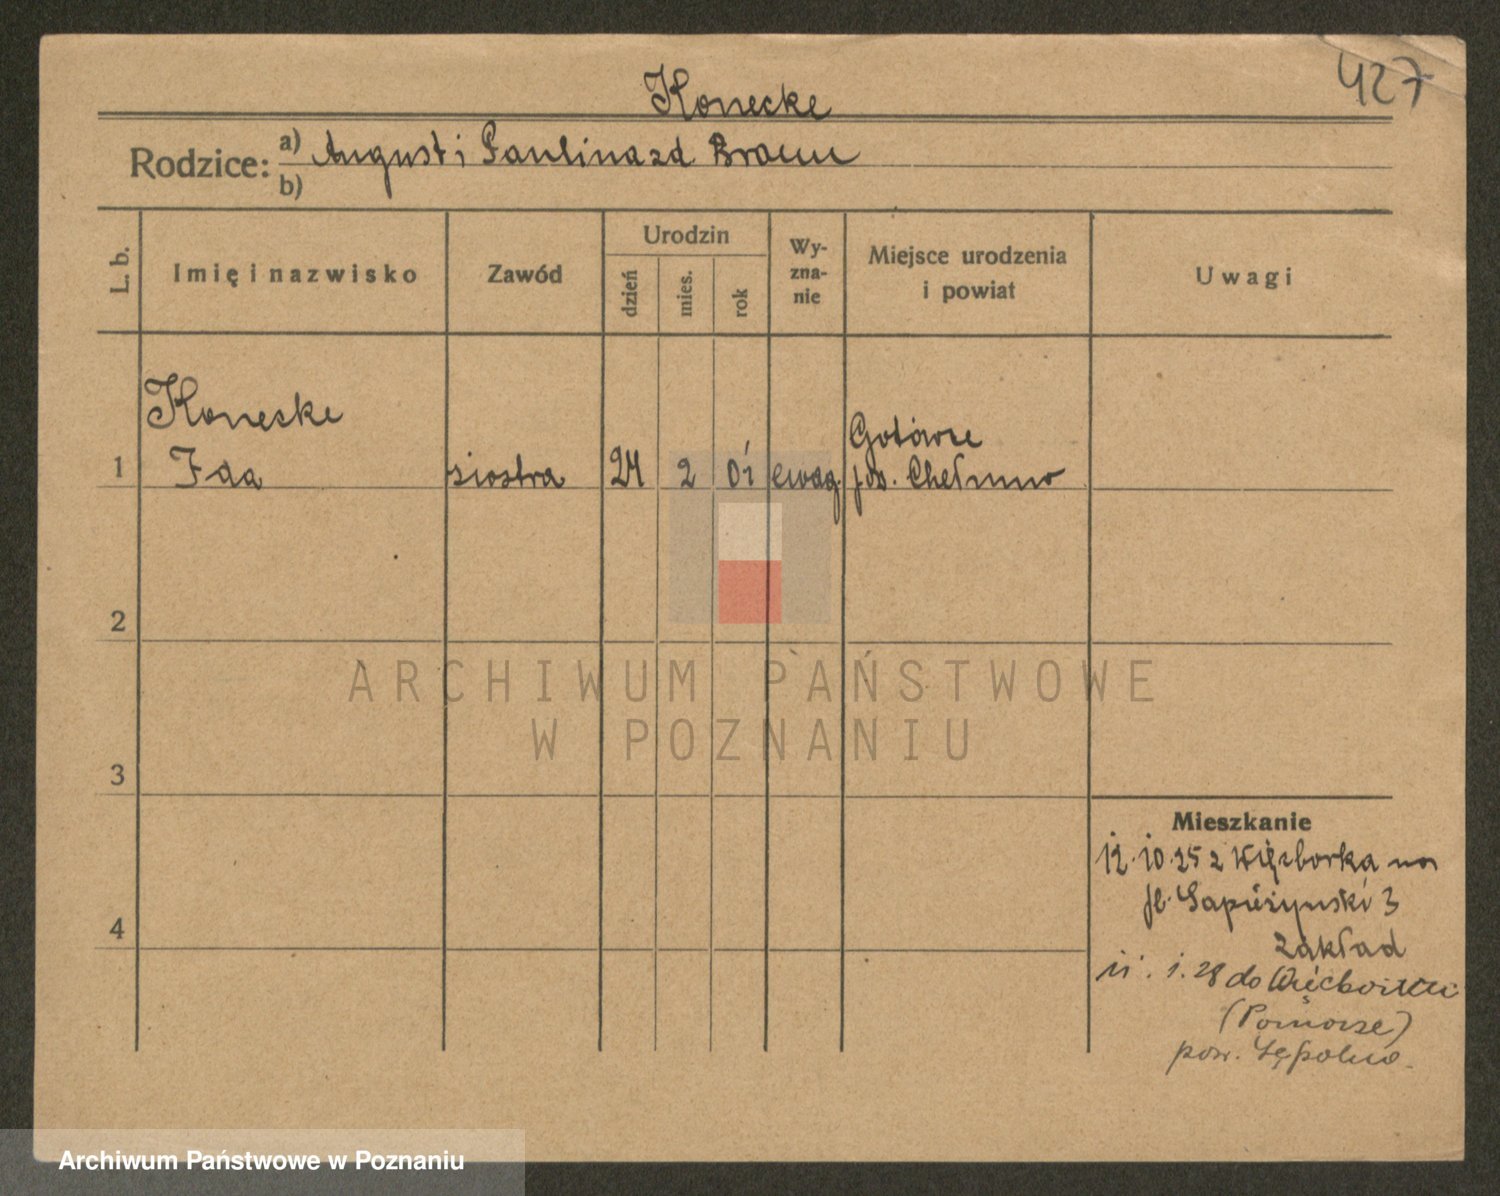 427
Konecke
Rodzice: a) August i Paulina zd Braun
b)
L. b.
Imię i nazwisko
Zawód
Urodzin
dzień
mies.
rok
Wy-
zna-
nie
Miejsce urodzenia
i powiat
Uwagi
Koneske
1 Ida siostra 24 2 01 ewag. pow. Chełmno
2
3
4
ARCHIWUM PAŃSTWOWE
W POZNANIU
Mieszkanie
12.10.25 z Więcborka na
pl. Sapieżyński 3
zakład
11.1.28 do Więcborka
(Pomorze)
pow. Sępolno.
Archiwum Państwowe w Poznaniu